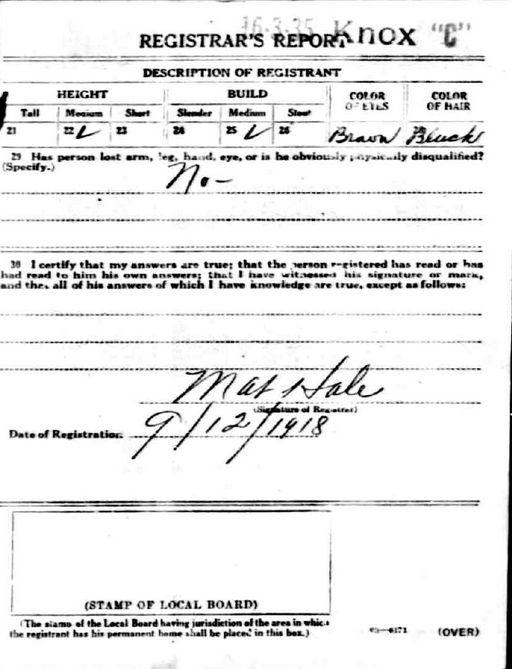 16-3-35 Knox "C"
REGISTRAR'S REPORT
DESCRIPTION OF REGISTRANT
HEIGHT BUILD COLOR OF EYES COLOR OF HAIR
Tall Medium Short Slender Medium Stout
21 22 ✓ 23 24 25 ✓ 26 Brown Black
29 Has person lost arm, leg, hand, eye, or is he obviously physically disqualified?
(Specify.)
No-
30 I certify that my answers are true; that the person registered has read or has
had read to him his own answers; that I have witnessed his signature or mark,
and that all of his answers of which I have knowledge are true, except as follows:
Hale
(Signature of Registrar)
Date of Registration 9/12/1918
(STAMP OF LOCAL BOARD)
(The stamp of the Local Board having jurisdiction of the area in which
the registrant has his permanent home shall be placed in this box.)
03-6171 (OVER)